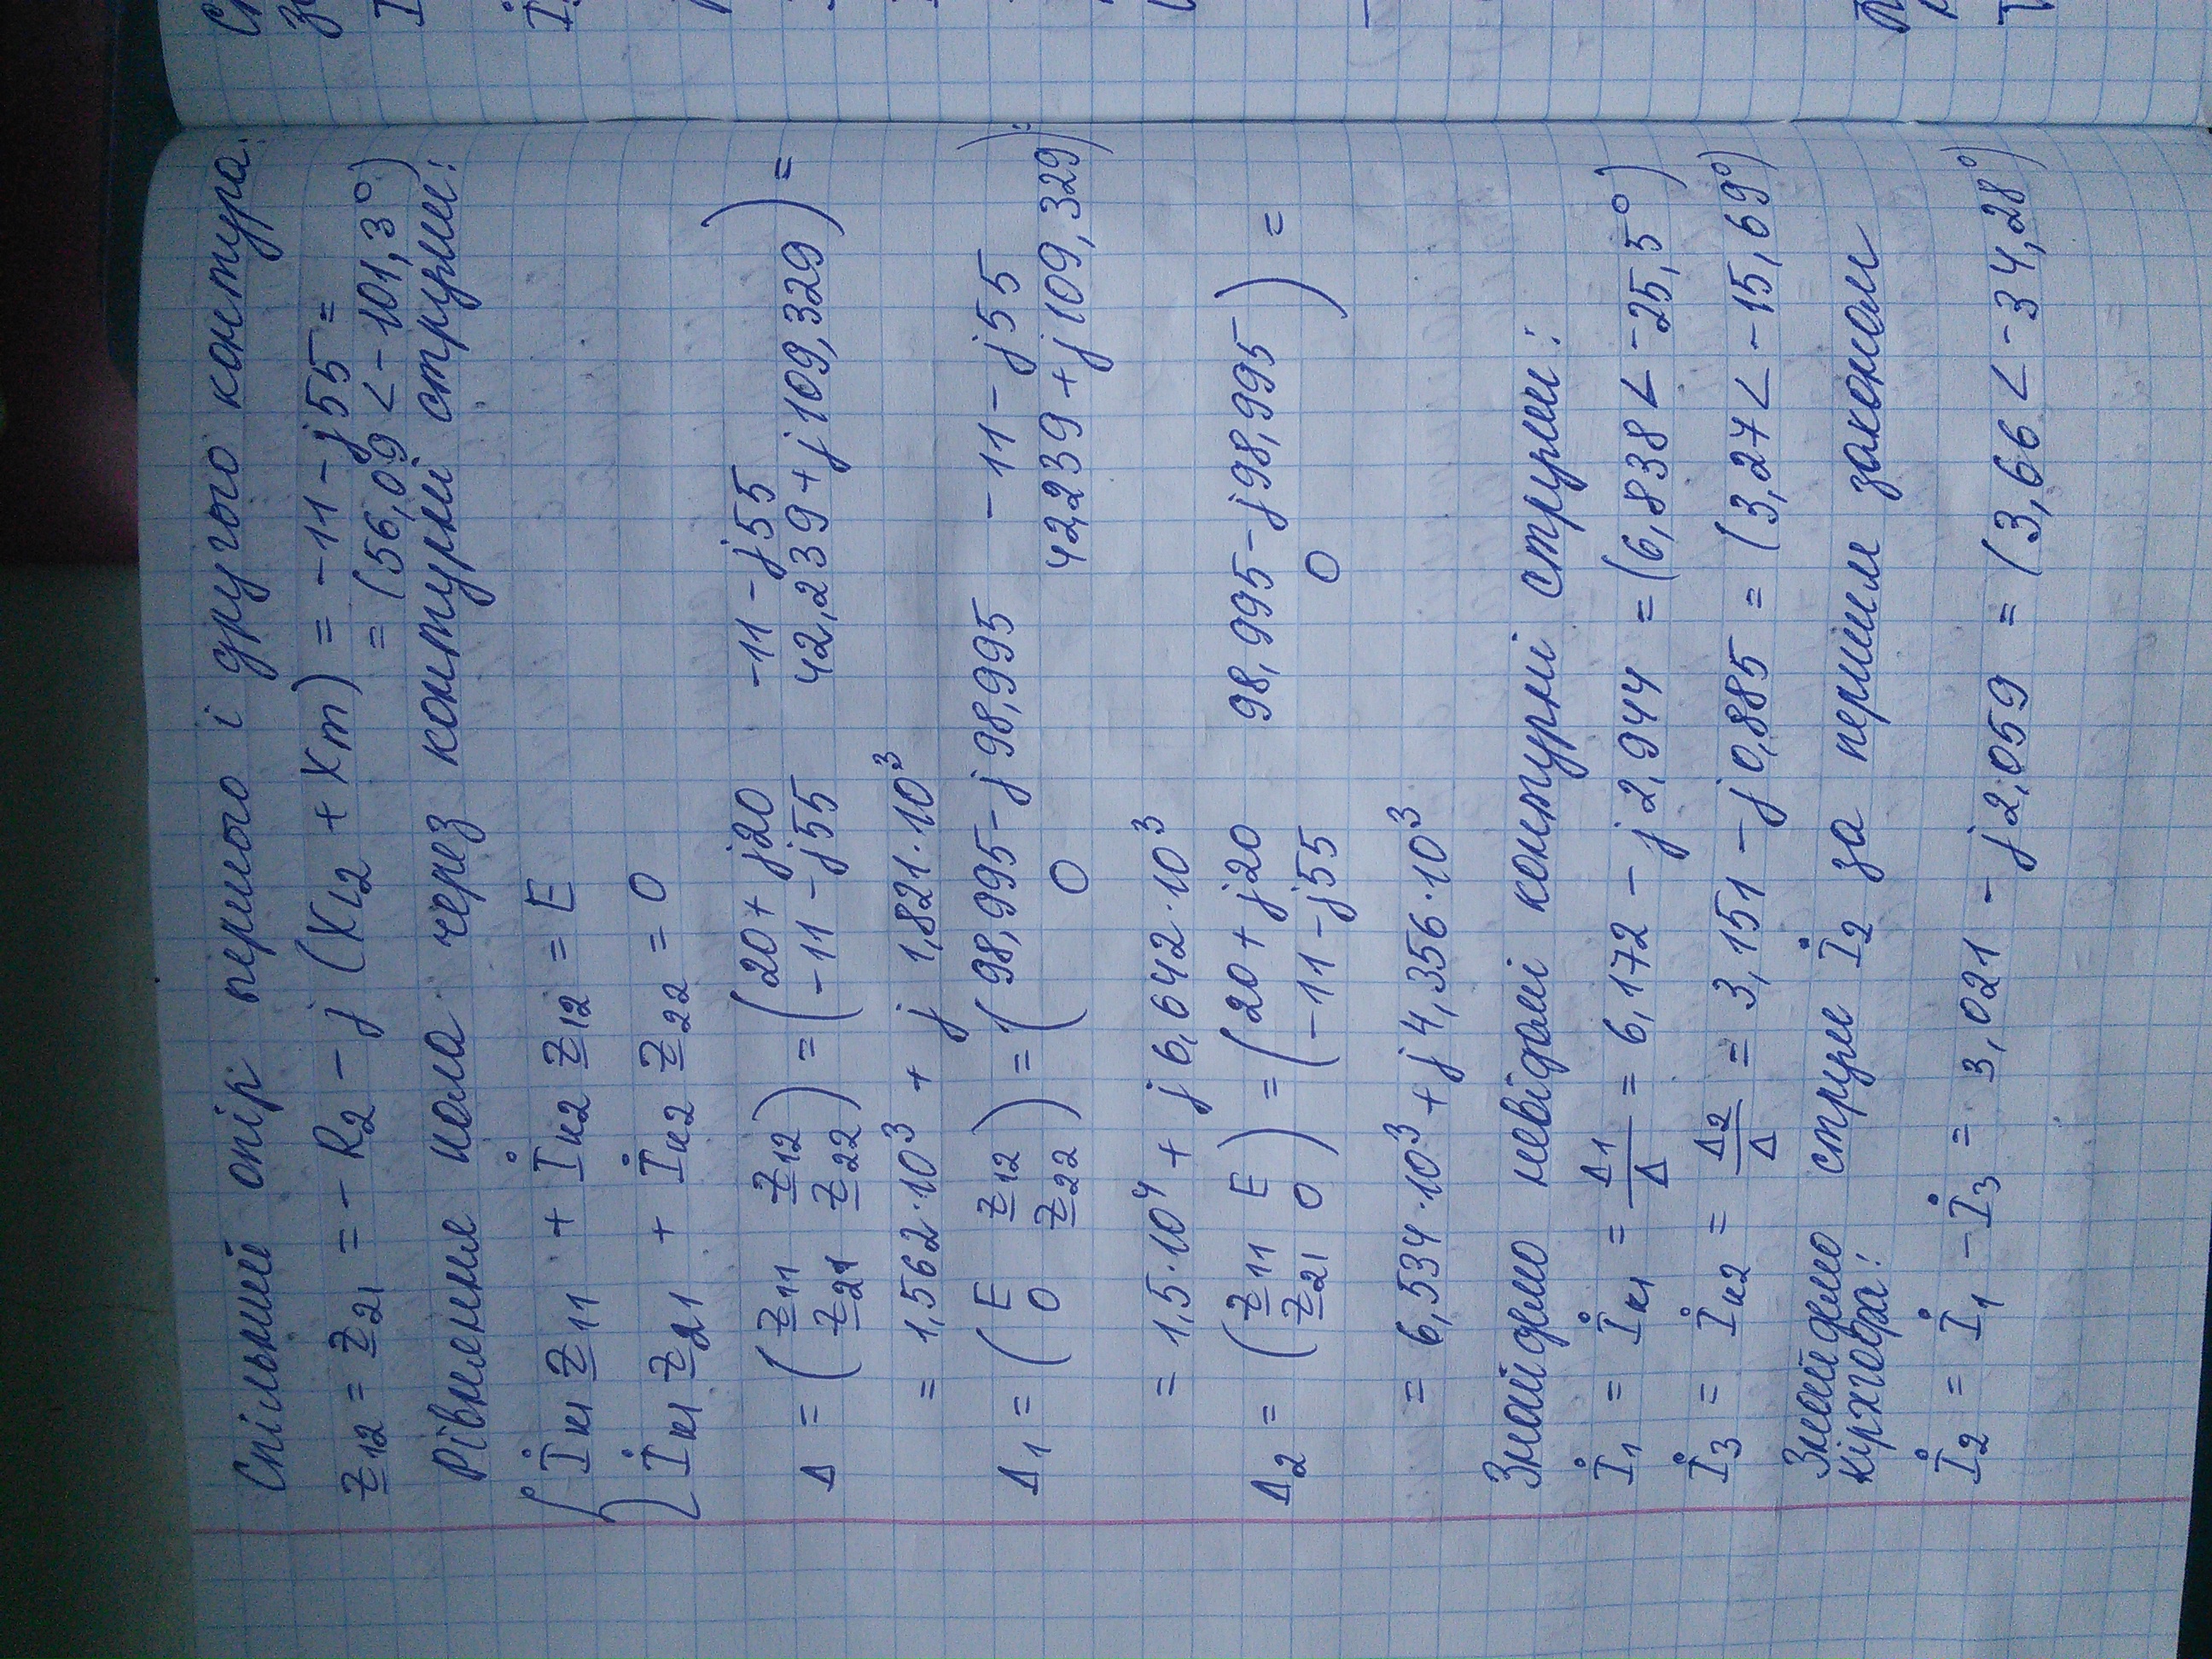 Спільний опір першого і другого контура:
Z12 = Z21 = - R2 - j (XL2 + Xm) = -11 - j55 =
= (56,09 < -101,3°)
Рівняння кола через контурні струми:
İк1 Z11 + İк2 Z12 = E
İк1 Z21 + İк2 Z22 = 0
Δ = ( Z11 Z12 ) = ( 20 + j20 -11 - j55 ) =
Z21 Z22 -11 - j55 42,239 + j109,329
= 1,562·10³ + j 1,821·10³
Δ1 = ( E Z12 ) = ( 98,995 - j98,995 -11 - j55 ) =
0 Z22 0 42,239 + j109,329
= 1,5·10⁴ + j6,642·10³
Δ2 = ( Z11 E ) = ( 20 + j20 98,995 - j98,995 ) =
Z21 0 -11 - j55 0
= 6,534·10³ + j4,356·10³
Знайдемо невідомі контурні струми:
İ1 = İк1 = Δ1/Δ = 6,172 - j2,944 = (6,838 < -25,5°)
İ3 = İк2 = Δ2/Δ = 3,151 - j0,885 = (3,27 < -15,69°)
Знайдемо струм İ2 за першим законом
кірхгофа:
İ2 = İ1 - İ3 = 3,021 - j2,059 = (3,66 < -34,28°)